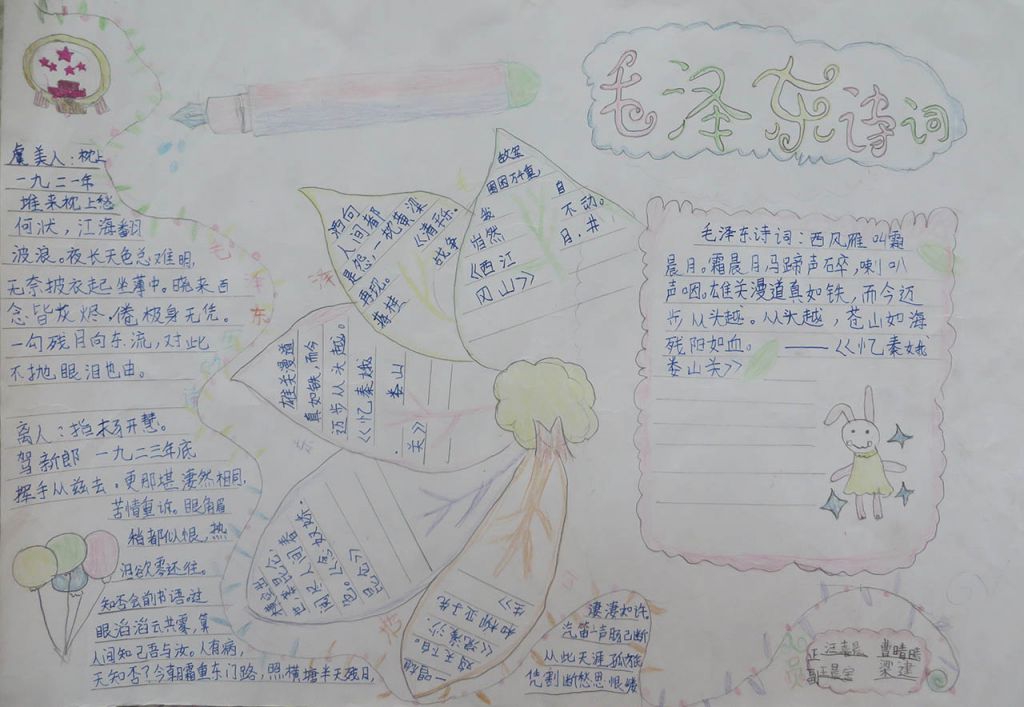 毛泽东诗词
虞美人：枕上
一九二一年
堆来枕上愁
何状，江海翻
波浪。夜长天色总难明，
无奈披衣起坐薄中。晓来百
念皆灰烬。倦极身无凭。
一句残月向东流，对此
不抛眼泪也由。
离人：挡未牙开慧。
驾新郎 一九二三年底
挥手从兹去。更那堪凄然相向，
苦情重诉。眼角眉
稍都似恨，热
泪欲零还住。
知否会前书语。过
眼滔滔云共雾，算
人间知己吾与汝。人有病，
天知否？今朝霜重东门路，照横塘半天残月，
凄凄如许。
汽笛一声肠已断
从此天涯孤旅
凭割断愁思恨缕
洒向
人间都
是怨，一枕黄梁
再现。《清平乐.
蒋桂
战争
故垒
困困万千重，
我
自
当然
不动。
《西江
月.井
冈山》》
雄关漫道
真如铁，而今
迈步从头越。
《忆秦娥
娄山
.关》
毛泽东诗词：西风雁叫霜
晨月。霜晨月，马蹄声碎，喇叭
声咽。雄关漫道真如铁，而今迈
步从头越。从头越，苍山如海
残阳如血。——《《忆秦娥
娄山关》》
横空出
世莽昆仑
阅尽人间春
一唱雄
鸡天下白。
《《浣溪沙.
和柳亚子先
生》
毛
泽
东